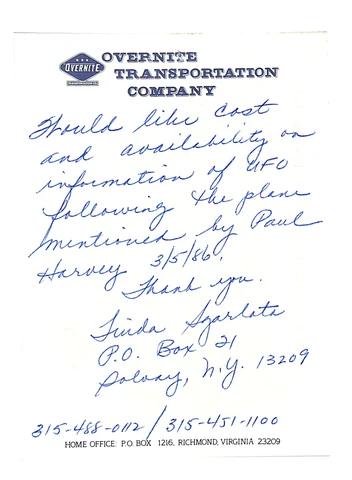 OVERNITE
OVERNITE
TRANSPORTATION
COMPANY
Would like cost
and availability on
information of UFO
following the plane
mentioned by Paul
Harvey 3/5/86.
Thank you.
Linda Sgarlata
P.O. Box 21
Solvay, N.Y. 13209
315-488-0112 / 315-451-1100
HOME OFFICE: P.O. BOX 1216, RICHMOND, VIRGINIA 23209